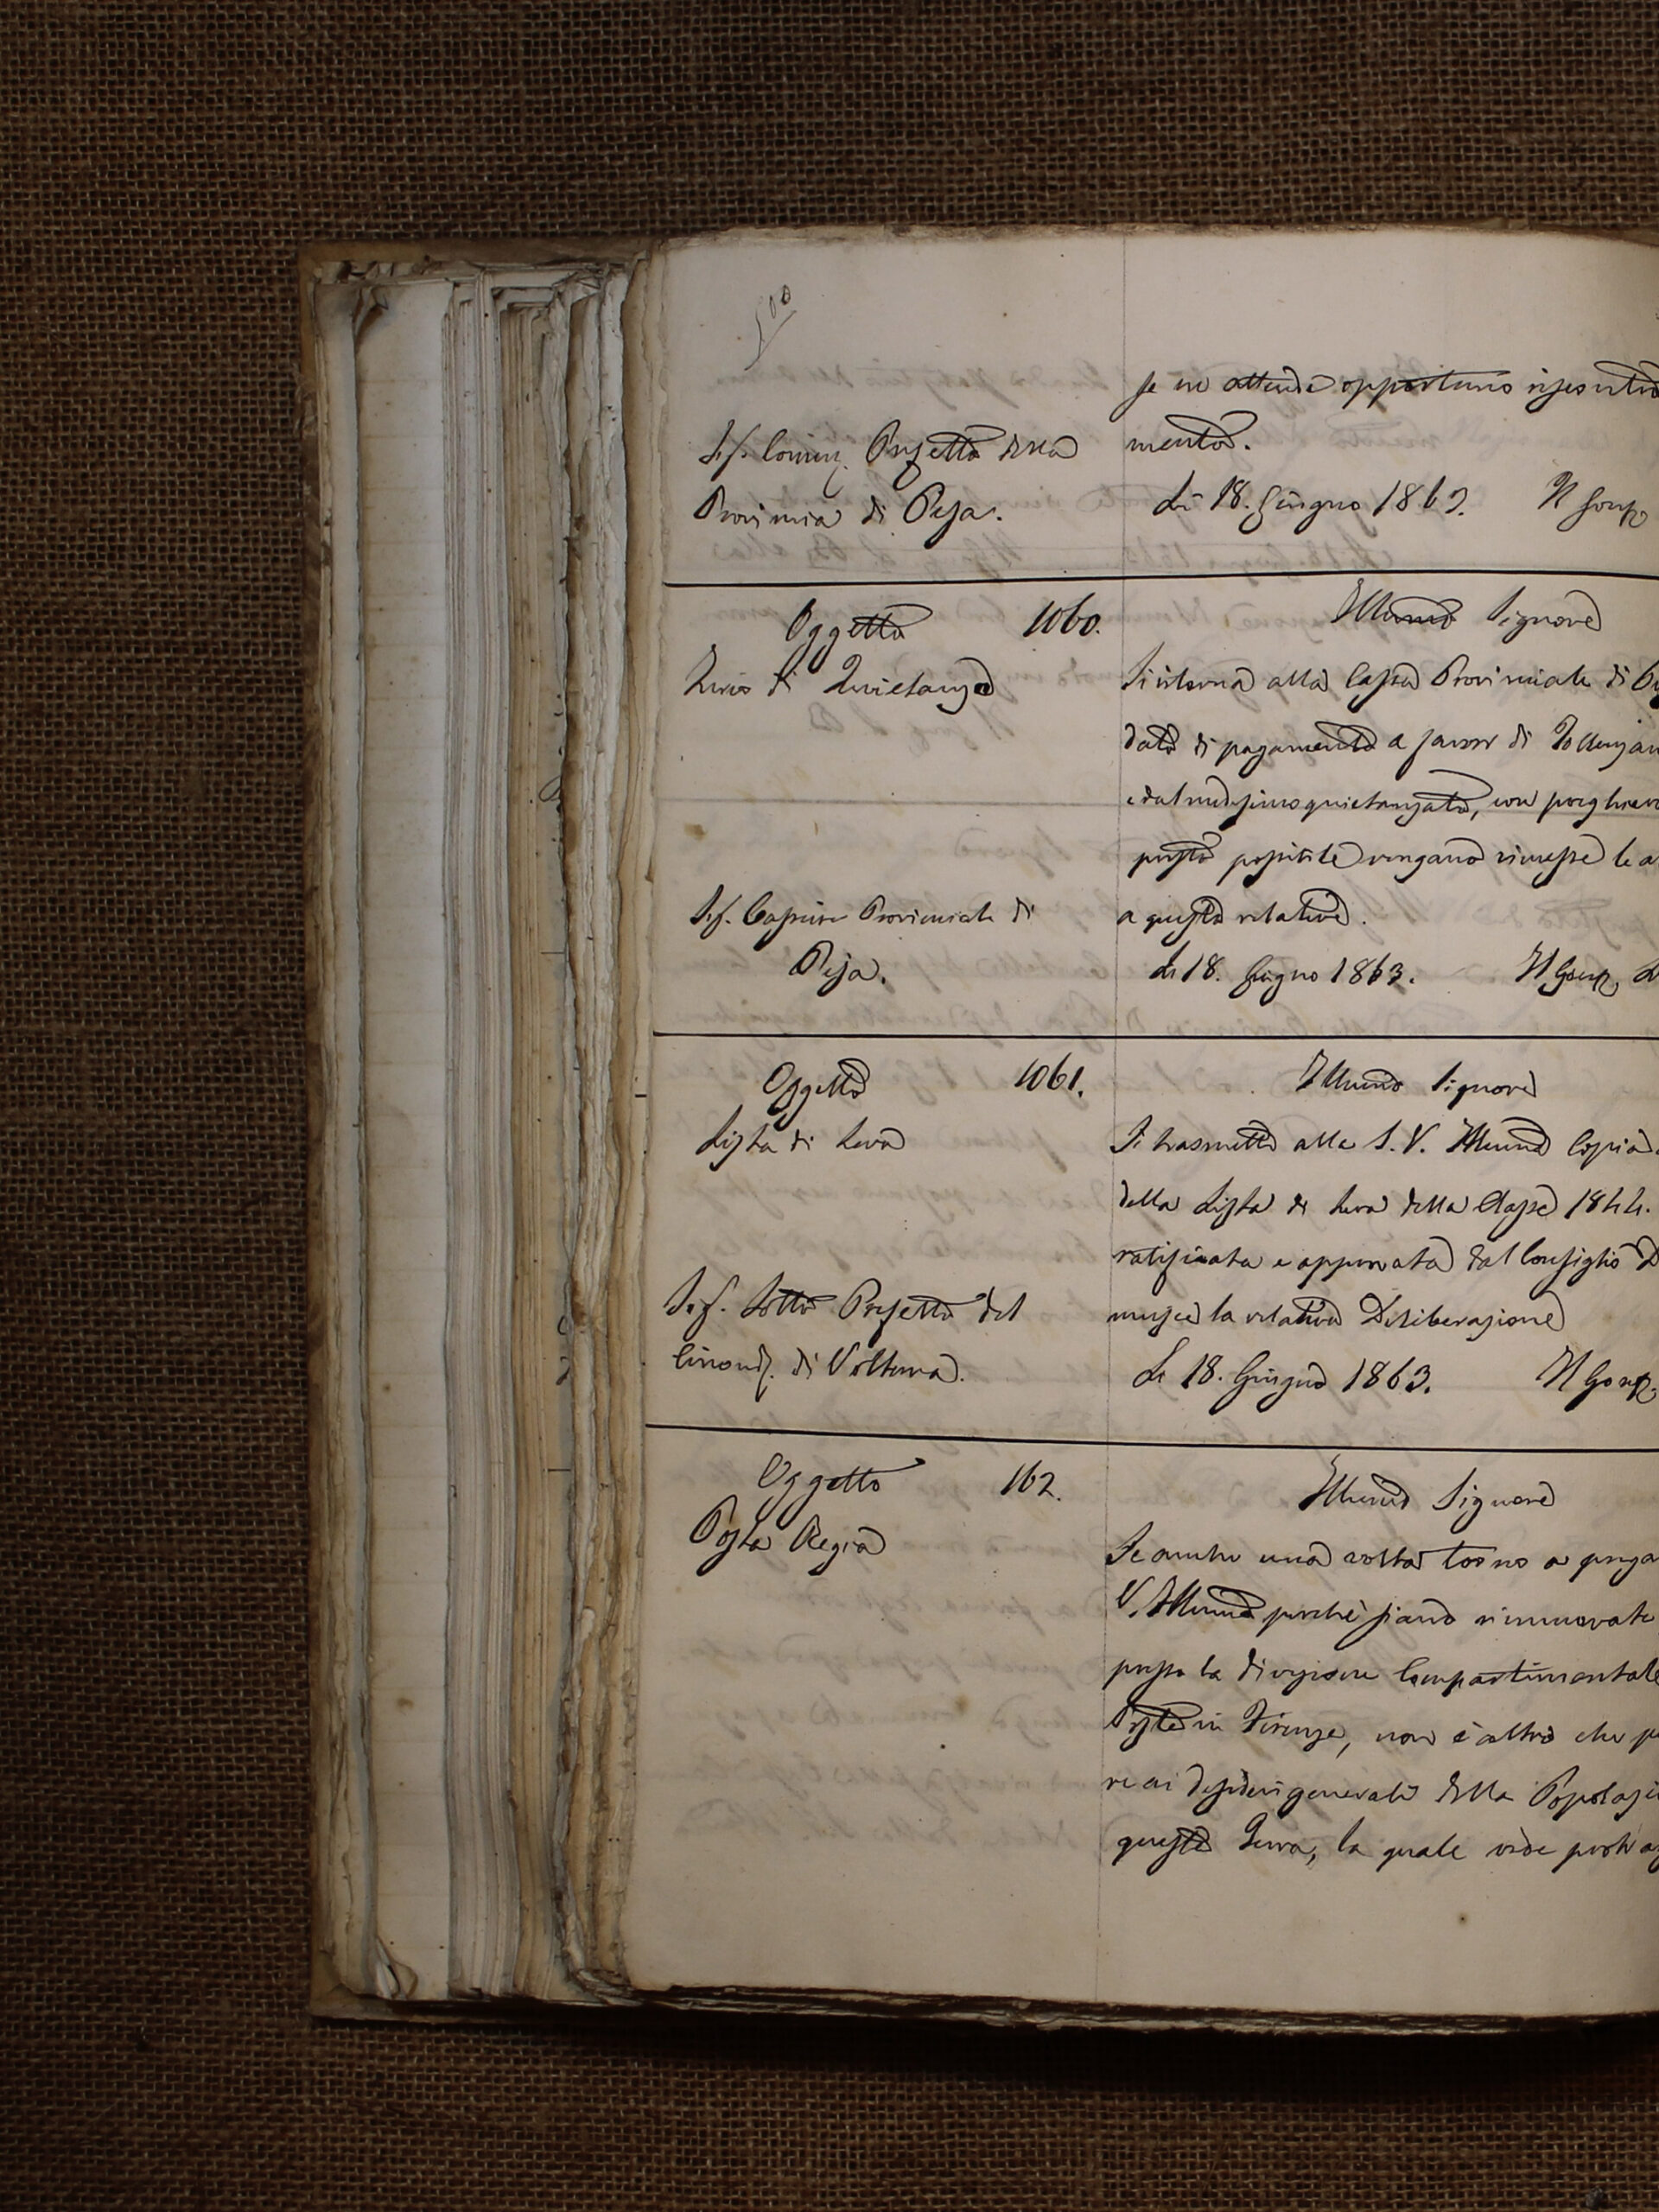 500
se ne attende opportuno
mento.
S. f. Prefetto della
Provincia di Pisa.
Li 18. Giugno 1863. Il Gonf.
Oggetto 1060.
Invio di Quietanza
Illumo Signore
Si ritorna alla Cassa Provinciale di
dato di pagamento a favor di
e dal medesimo quietanzato, con preghiera
presto possibile vengano rimesse le
a questo relative.
S. f. Cassiere Provinciale di
Pisa.
Li 18. Giugno 1863. Il Gonf.
Oggetto 1061.
Lista di Leva
Illumo Signore
Si trasmette alla S. V. Illuma Copia
della Lista di Leva della Classe 1844.
ratificata e approvata dal Consiglio
la relativa Deliberazione
S. f. Sotto Prefetto del
Circond. di Volterra.
Li 18. Giugno 1863. Il Gonf.
Oggetto 162.
Posta Regia
Illumo Signore
Se anche una volta torno a
V. Illuma perchè siano rinnuovate
presso la divisione Compartimentale
Poste in Firenze, non è altro che
re ai desideri generali della
questa Terra, la quale vide